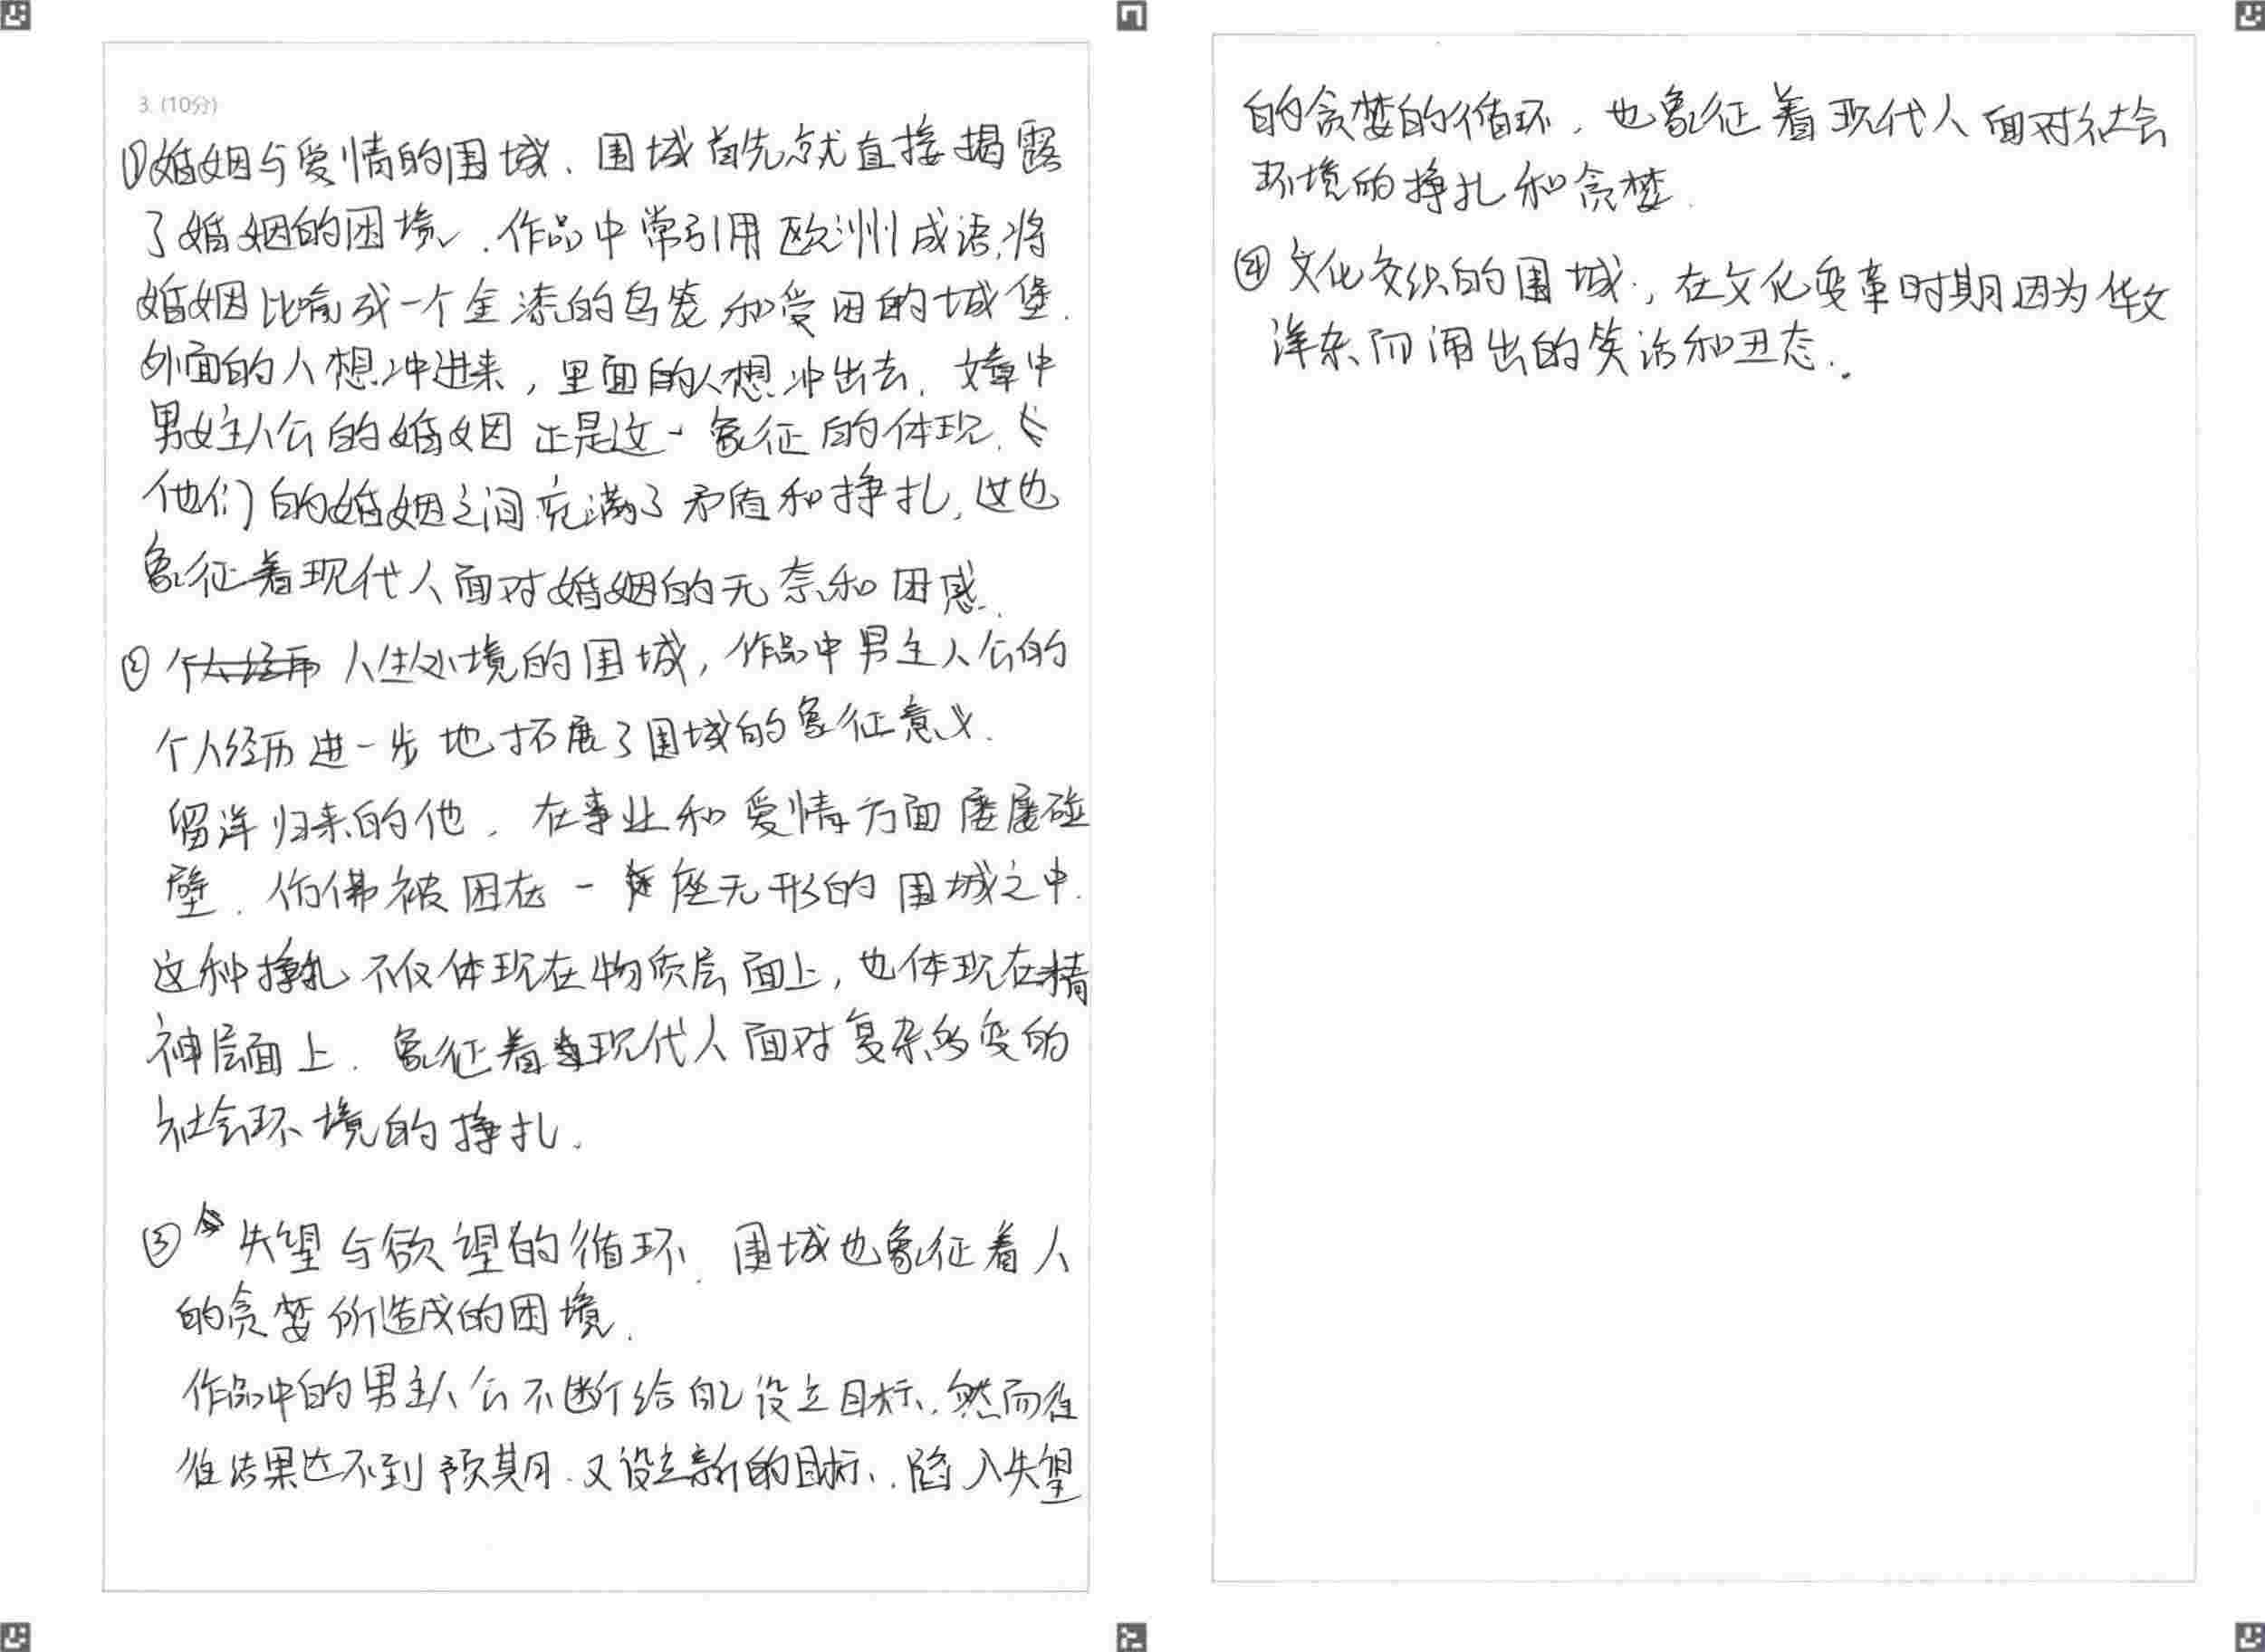 3. (10分)
①婚姻与爱情的围城．围城首先就直接揭露
了婚姻的困境．作品中常引用欧洲成语，将
婚姻比喻成一个金漆的鸟笼和受困的城堡．
外面的人想冲进来，里面的人想冲出去．文章中
男女主人公的婚姻正是这一象征的体现．
他们的婚姻之间充满了矛盾和挣扎，这也
象征着现代人面对婚姻的无奈和困惑．
② 人生处境的围城，作品中男主人公的
个人经历进一步地拓展了围城的象征意义．
留洋归来的他，在事业和爱情方面屡屡碰
壁．仿佛被困在一座无形的围城之中．
这种挣扎不仅体现在物质层面上，也体现在精
神层面上．象征着现代人面对复杂多变的
社会环境的挣扎．
③ 失望与欲望的循环．围城也象征着人
的贪婪所造成的困境．
作品中的男主人公不断给自己设立目标．然而往
往结果达不到预期．又设立新的目标．陷入失望
的贪婪的循环．也象征着现代人面对社会
环境的挣扎和贪婪．
④ 文化交织的围城．，在文化变革时期因为华文
洋杂而闹出的笑话和丑态．